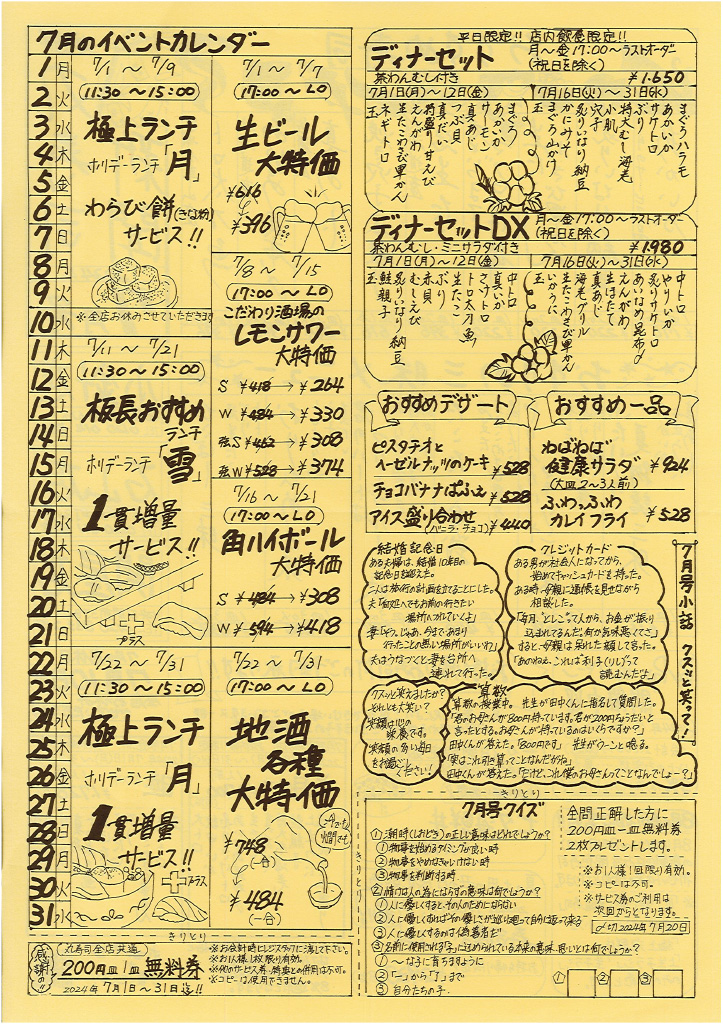 7月のイベントカレンダー
1 月
2 火
3 水
4 木
5 金
6 土
7 日
8 月
9 火
10 水
11 木
12 金
13 土
14 日
15 月
16 火
17 水
18 木
19 金
20 土
21 日
22 月
23 火
24 水
25 木
26 金
27 土
28 日
29 月
30 火
31 水
7/1 〜 7/9
11:30 〜 15:00
極上ランチ
ホリデーランチ「月」
わらび餅(きな粉)
サービス!!
※全店お休みさせていただきます
7/11 〜 7/21
11:30 〜 15:00
板長おすすめ
ランチ
ホリデーランチ「雪」
1貫増量
サービス!!
プラス
7/22 〜 7/31
11:30 〜 15:00
極上ランチ
ホリデーランチ「月」
1貫増量
サービス!!
プラス
7/1 〜 7/7
17:00 〜 LO
生ビール
大特価
¥616
¥396
7/8 〜 7/15
17:00 〜 LO
こだわり酒場の
レモンサワー
大特価
S ¥418→¥264
W ¥484→¥330
弦S ¥462→¥308
弦W ¥528→¥374
7/16 〜 7/21
17:00 〜 LO
角ハイボール
大特価
S ¥484→¥308
W ¥594→¥418
7/22 〜 7/31
17:00 〜 LO
地酒
各種
大特価
冷でも
燗でも
¥748
(一合)
¥484
(一合)
平日限定!! 店内飲食限定!!
ディナーセット
月〜金 17:00〜ラストオーダー
(祝日を除く)
茶わんむし付き
¥1.650
7月1日(月)〜12日(金)
まぐろ
あかいか
サーモン
真あじ
つぶ貝
真だい
特盛り甘えび
えんがわ
生たこわさび軍かん
ネギトロ
玉
7月16日(火)〜31日(水)
まぐろハラモ
あかいか
サケトロ
ぶり
特大むし海老
小肌
穴子
炙りいなり納豆
かにみそ
まぐろ山かけ
玉
ディナーセットDX
月〜金 17:00〜ラストオーダー
(祝日を除く)
茶わんむし・ミニサラダ付き
¥1.980
7月1日(月)〜12日(金)
中トロ
真いか
さけトロ
トロ太刀魚
生たこ
赤貝
むしえび
炙りいなり納豆
鮭親子
玉
7月16日(火)〜31日(水)
中トロ
やりいか
炙りサケトロ
あいなめ昆布〆
えんがわ
生ほたて
真あじ
海老アブリ
生たこわさび軍かん
いかうに
玉
おすすめデザート
ピスタチオと
ヘーゼルナッツのケーキ ¥528
チョコバナナぱふぇ ¥528
アイス盛り合わせ ¥440
(バニラ・チョコ)
おすすめ一品
ねばねば
健康サラダ ¥924
(大皿2〜3人前)
ふわっふわ
カレイフライ ¥528
7月号小話 クスッと笑って!
結婚記念日
ある夫婦は、結婚10年目の
記念日を迎えた。
二人は旅行の計画を立てることにした。
夫「何処へでもお前の行きたい
場所へつれていくよ」
妻「そう、じゃあ、今まであまり
行ったことの無い場所がいいわ」
夫はうなづくと妻を台所へ
連れて行った。
クレジットカード
ある男が社会人になってから、
始めてキャッシュカードを持った。
ある時、母親に通帳を見せながら
相談した。
「毎月、“としこ”って人から、お金が振り
込まれてるんだ。何か気味悪くてさ」
すると、母親は呆れた顔して言った。
「あのねぇ、これは利子(りし)って
読むんだよ」
クスッと笑えましたか?
それとも大笑い?
笑顔は心の
栄養です。
笑顔の多い毎日
をお過ごし
ください!
算数
算数の授業中。先生が田中くんに指名して質問した。
「君のお母さんが800円持っています。君が200円もらうだいと
言ったとする。お母さんが持っているのはいくらですか?」
田中くんが答えた。「800円です」 先生がウーンと唸る。
「実はこれ引き算ってことなんだがね」
田中くんが答えた。「だけど、これ僕のお母さんってことなんでしょー?」
きりとり
7月号クイズ
①潮時(しおどき)の正しい意味はどれでしょうか?
①物事を始めるタイミングが良い時
②物事をやめなきゃいけない時
③物事を判断する時
②情けは人の為にならずの意味は何でしょうか?
①人に優しくすると、その人のためにならない
②人に優しくすればその優しさが巡り巡って自分に返って来る
③人に優しくするのは偽善者だ
③名前に使用される「子」に込められている本来の意味、思いとは何でしょうか?
①〜な子に育ちますように
②「一」から「了」まで
③自分たちの子
全問正解した方に
200円皿一皿無料券
2枚プレゼントします。
※お1人様1回限り有効。
※コピーは不可。
※サービス券のご利用は
次回からとなります。
〆切 2024年7月20日
① ② ③
きりとり
きりとり
感謝の!!
丸寿司全店共通
200円皿1皿無料券
2024年 7月1日〜31日迄!!
※お会計時にレジスタッフに渡して下さい。
※お1人様1枚限り有効。
※他のサービス券・特典との併用は不可。
※コピーは使用できません。